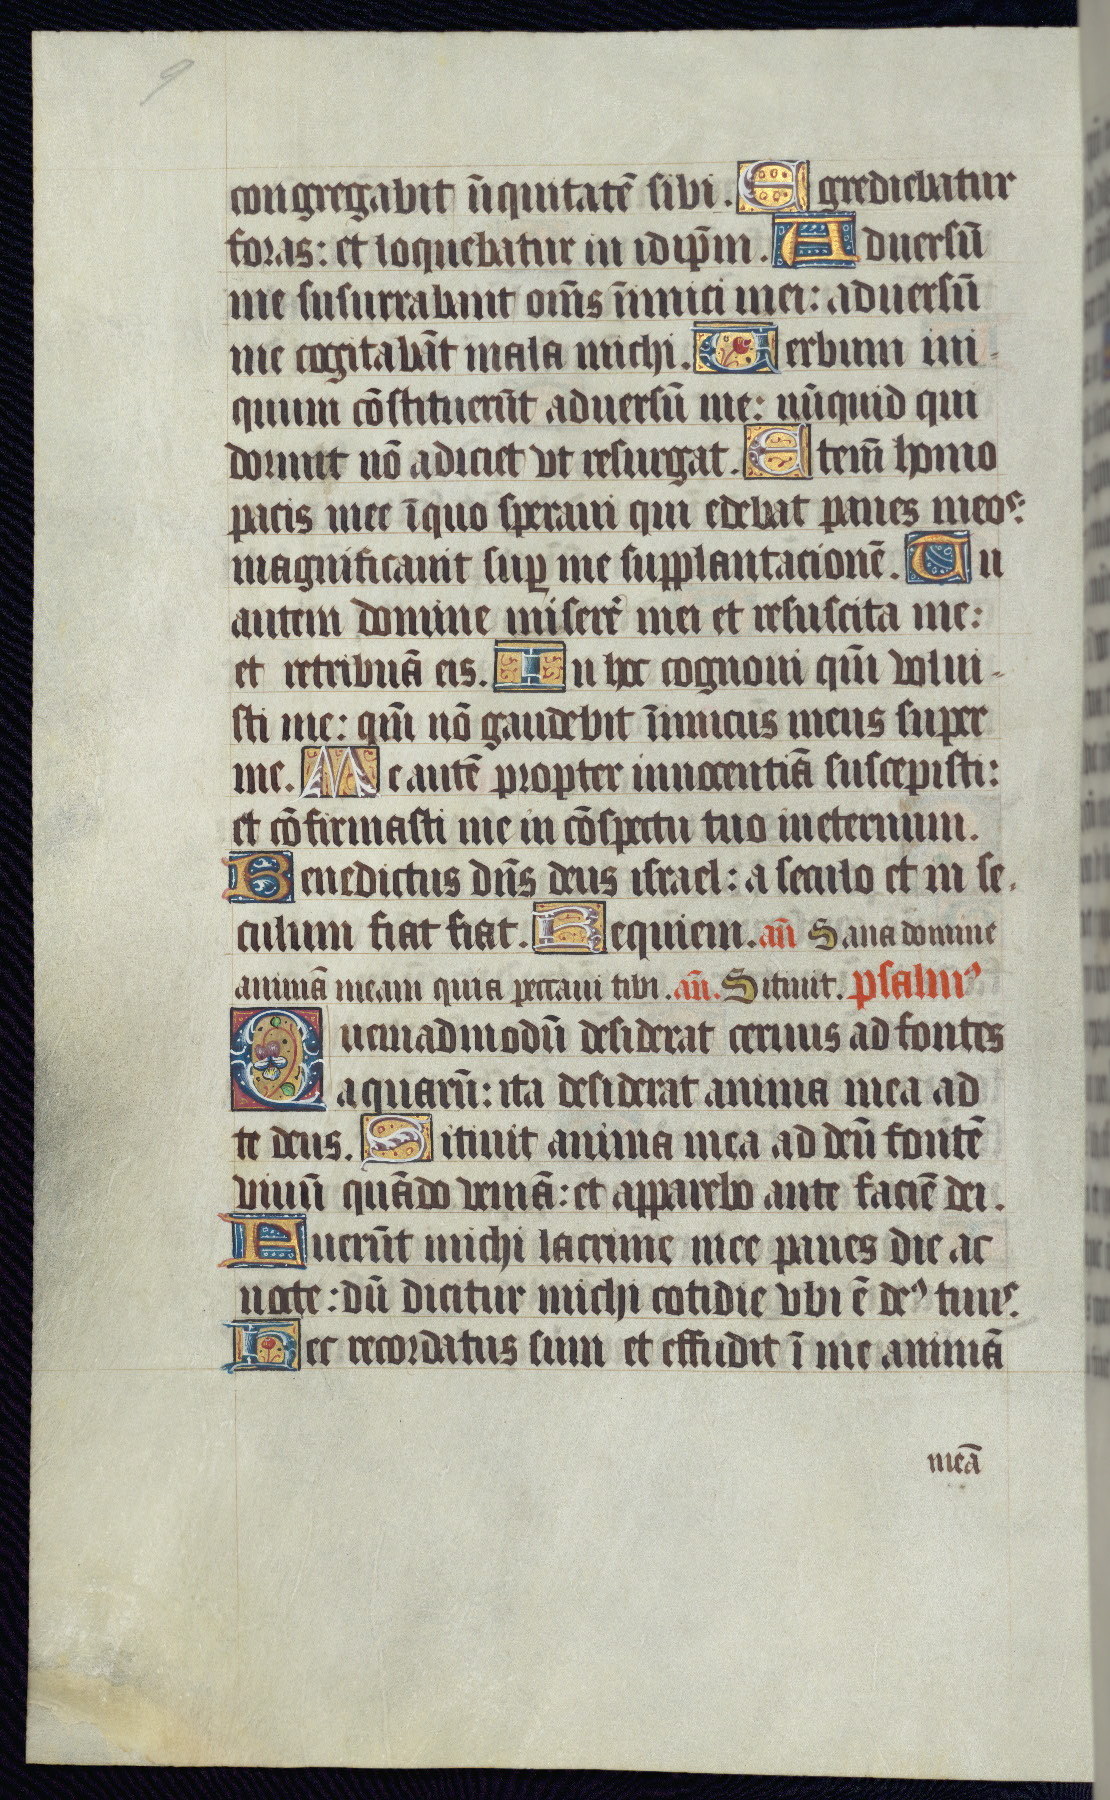 9
congregabit īiquitatē sibi. Egrediebatur
foras: et loquebatur in idip̄m. Aduersū
me susurrabant om̄s īimici mei: aduersū
me cogitabāt mala michi. Uerbum ini-
quum cōstituerūt aduersū me: nūquid qui
dormit nō adiciet vt resurgat. Etem̄ homo
pacis mee ī quo speraui qui edebat panes meoꝰ:
magnificauit suꝑ me supplantacionē. Tu
autem domine miserē mei et resuscita me:
et retribuā eis. In hoc cognoui qm̄ volui-
sti me: qm̄ nō gaudebit īimicus meus super
me. Me autē propter innocentiā suscepisti:
et cōfirmasti me in cōspectu tuo ineternum.
Benedictus dn̄s deus israel: a seculo et in se-
culum fiat fiat. Requiem. an̄ Sana domine
animā meam quia peccaui tibi. an̄. Sitiuit. psalmꝰ
Quemadmodū desiderat ceruus ad fontes
aquarū: ita desiderat anima mea ad
te deus. Sitiuit anima mea ad deū fontē
viuū quādo veniā: et apparebo ante faciē dei.
Fuerūt michi lacrime mee panes die ac
nocte: dū dicitur michi cotidie vbi ē deꝰ tuuꝰ.
Hec recordatus sum et effudit ī me animā
meā